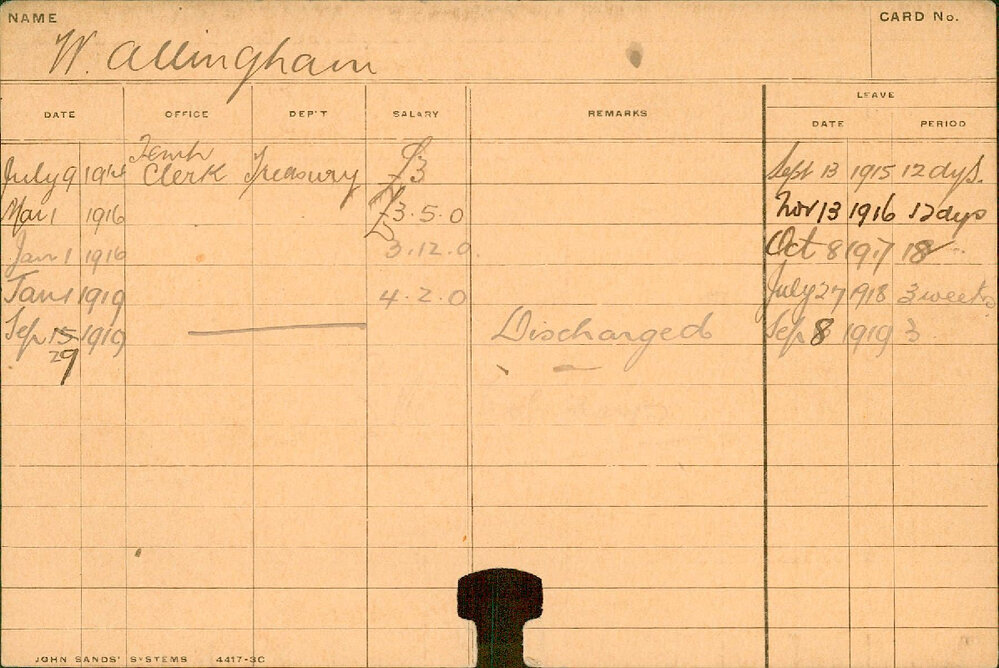 NAME CARD No.
W. Allingham
LEAVE
DATE OFFICE DEP'T SALARY REMARKS DATE PERIOD
Temp
July 9 1914 Clerk Treasury £3 Sept 13 1915 12 dys.
Mar 1 1916 £3.5.0 Nov 13 1916 12 dys
Jan 1 1916 3.12.0. Oct 8 1917 18
Jan 1 1919 4.2.0 July 27 1918 3 weeks
Sep 15 1919 Discharged Sep 8 1919 3
29
JOHN SANDS' SYSTEMS 4417-3C